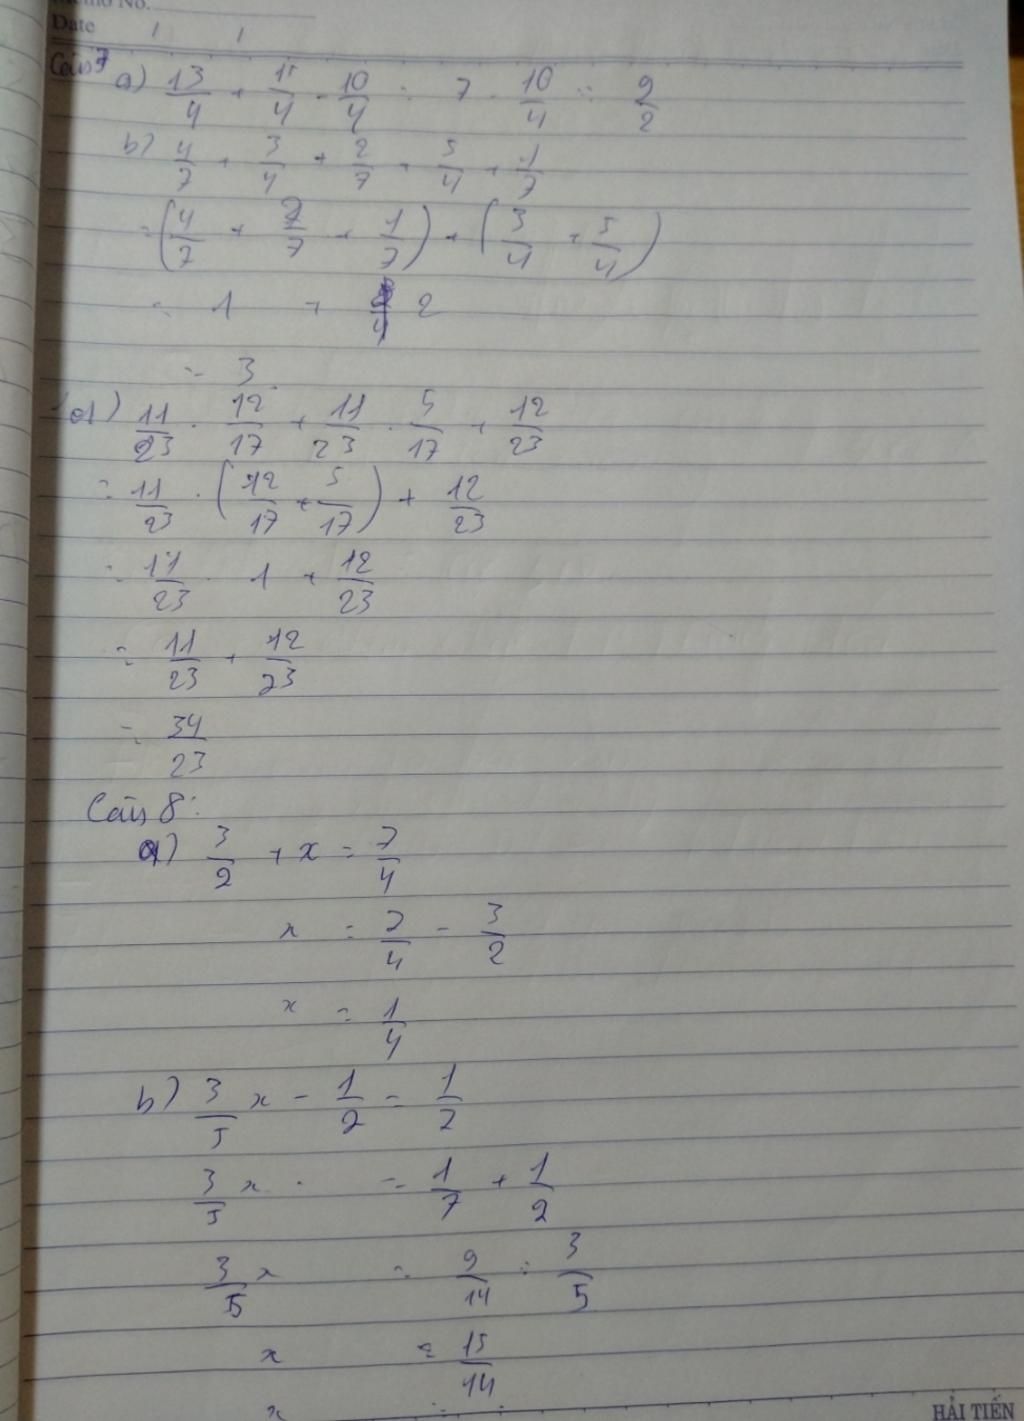 Memo No.
Date / /
Câu 7
a) 13/4 + 15/4 - 10/4 = 7 - 10/4 = 9/2
b) 4/7 + 3/4 + 2/7 + 5/4 + 1/7
= (4/7 + 2/7 + 1/7) + (3/4 + 5/4)
= 1 + 2
= 3
d) 11/23 . 12/17 + 11/23 . 5/17 + 12/23
= 11/23 . (12/17 + 5/17) + 12/23
= 11/23 . 1 + 12/23
= 11/23 + 12/23
= 34/23
Câu 8:
a) 3/2 + x = 7/4
x = 7/4 - 3/2
x = 1/4
b) 3/5 x - 1/2 = 1/7
3/5 x = 1/7 + 1/2
3/5 x = 9/14 : 3/5
x = 15/14
x =
HẢI TIẾN